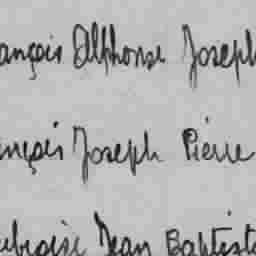 ançois Alphonse Joseph
nçois Joseph Pierre
Jean Baptist